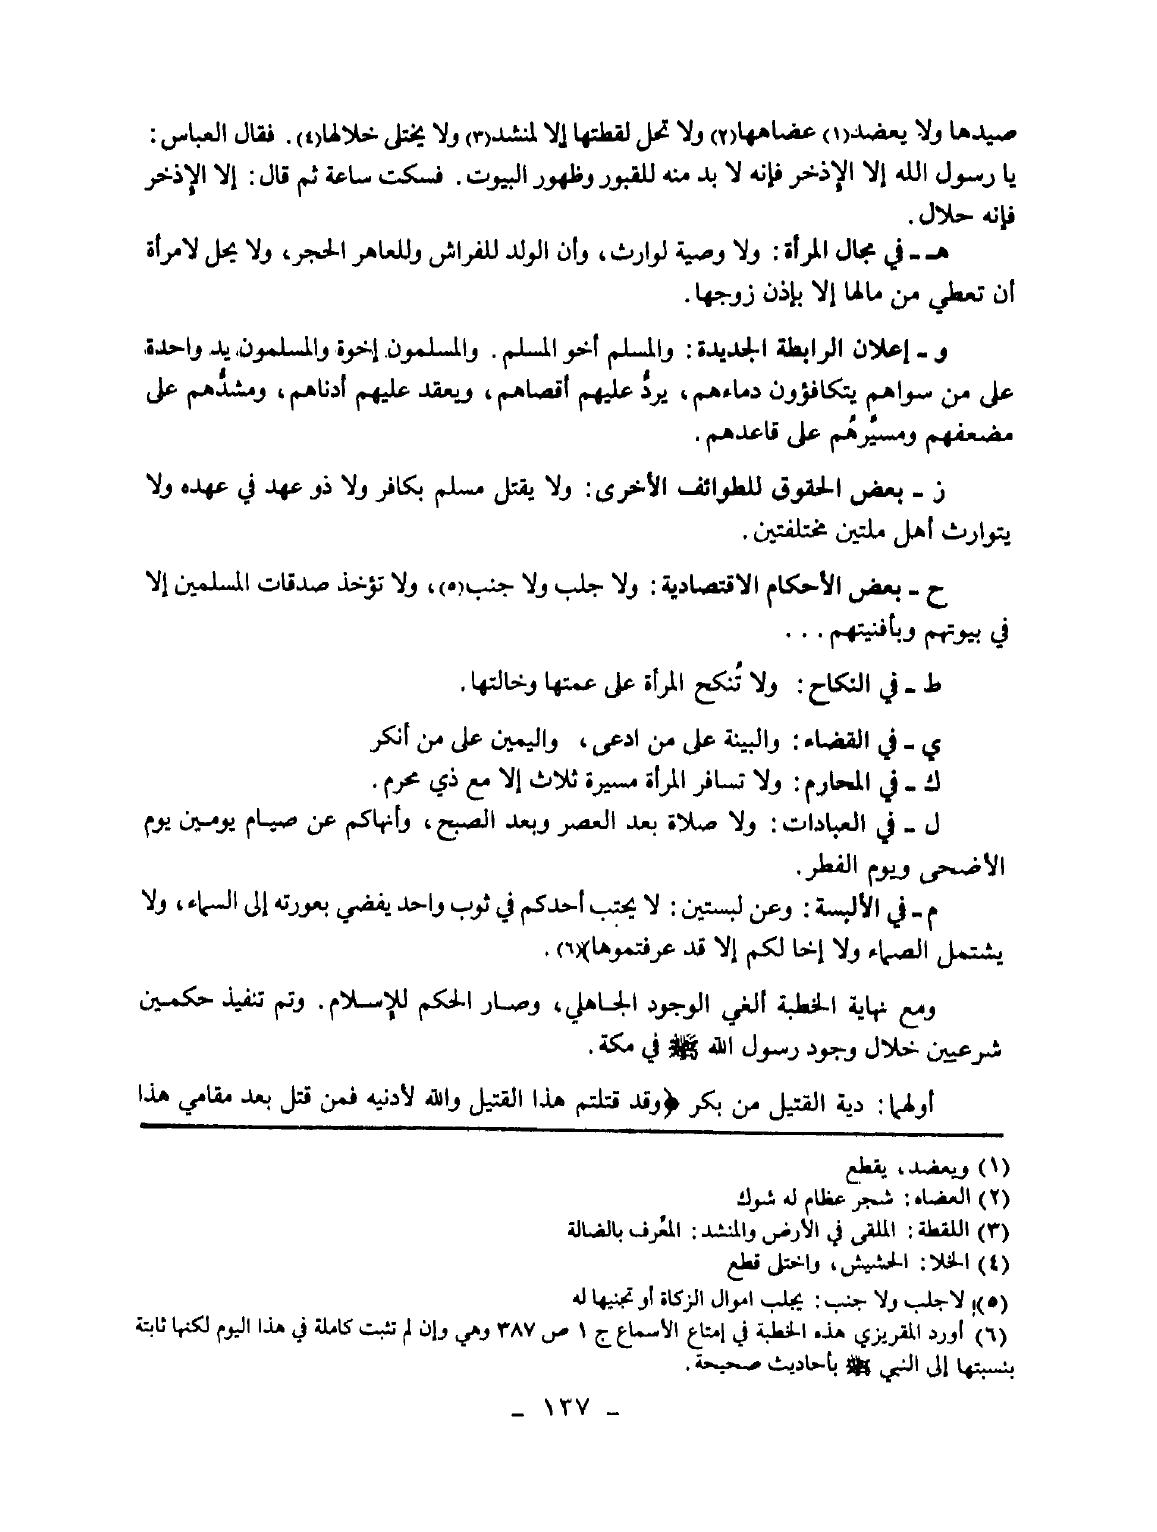 صيدها ولا يعضد(١) عضاهها(٢) ولا تحل لقطتها إلا لمنشد(٣) ولا يختلى خلالها(٤). فقال العباس:
يا رسول الله إلا الإذخر فإنه لا بد منه للقبور وظهور البيوت. فسكت ساعة ثم قال: إلا الإذخر
فإنه حلال.
هـ ـ في مجال المرأة: ولا وصية لوارث، وأن الولد للفراش وللعاهر الحجر، ولا يحل لامرأة
أن تعطي من مالها إلا بإذن زوجها.
و ـ إعلان الرابطة الجديدة: والمسلم أخو المسلم. والمسلمون إخوة والمسلمون يد واحدة
على من سواهم يتكافؤون دماءهم، يردُّ عليهم أقصاهم، ويعقد عليهم أدناهم، ومشدُّهم على
مضعفهم ومسيَّرهُم على قاعدهم.
ز ـ بعض الحقوق للطوائف الأخرى: ولا يقتل مسلم بكافر ولا ذو عهد في عهده ولا
يتوارث أهل ملتين مختلفتين.
ح ـ بعض الأحكام الاقتصادية: ولا جلب ولا جنب(٥)، ولا تؤخذ صدقات المسلمين إلا
في بيوتهم وبأفنيتهم...
ط ـ في النكاح: ولا تُنكح المرأة على عمتها وخالتها.
ي ـ في القضاء: والبينة على من ادعى، واليمين على من أنكر
ك ـ في المحارم: ولا تسافر المرأة مسيرة ثلاث إلا مع ذي محرم.
ل ـ في العبادات: ولا صلاة بعد العصر وبعد الصبح، وأنهاكم عن صيام يومين يوم
الأضحى ويوم الفطر.
م ـ في الألبسة: وعن لبستين: لا يحتب أحدكم في ثوب واحد يفضي بعورته إلى السماء، ولا
يشتمل الصماء ولا إخا لكم إلا قد عرفتموها)(٦).
ومع نهاية الخطبة ألغي الوجود الجاهلي، وصار الحكم للإسلام. وتم تنفيذ حكمين
شرعيين خلال وجود رسول الله ﷺ في مكة.
أولهما: دية القتيل من بكر ﴿وقد قتلتم هذا القتيل والله لأدنيه فمن قتل بعد مقامي هذا
(١) ويعضد، يقطع
(٢) العضاه: شجر عظام له شوك
(٣) اللقطة: الملقى في الأرض والمنشد: المعُرف بالضالة
(٤) الخلا: الحشيش، واختلى قطع
(٥) لاجلب ولا جنب: يجلب اموال الزكاة أو تجنيها له
(٦) أورد المقريزي هذه الخطبة في إمتاع الأسماع ج ١ ص ٣٨٧ وهي وإن لم تثبت كاملة في هذا اليوم لكنها ثابتة
بنسبتها إلى النبي ﷺ بأحاديث صحيحة.
ـ ١٣٧ ـ